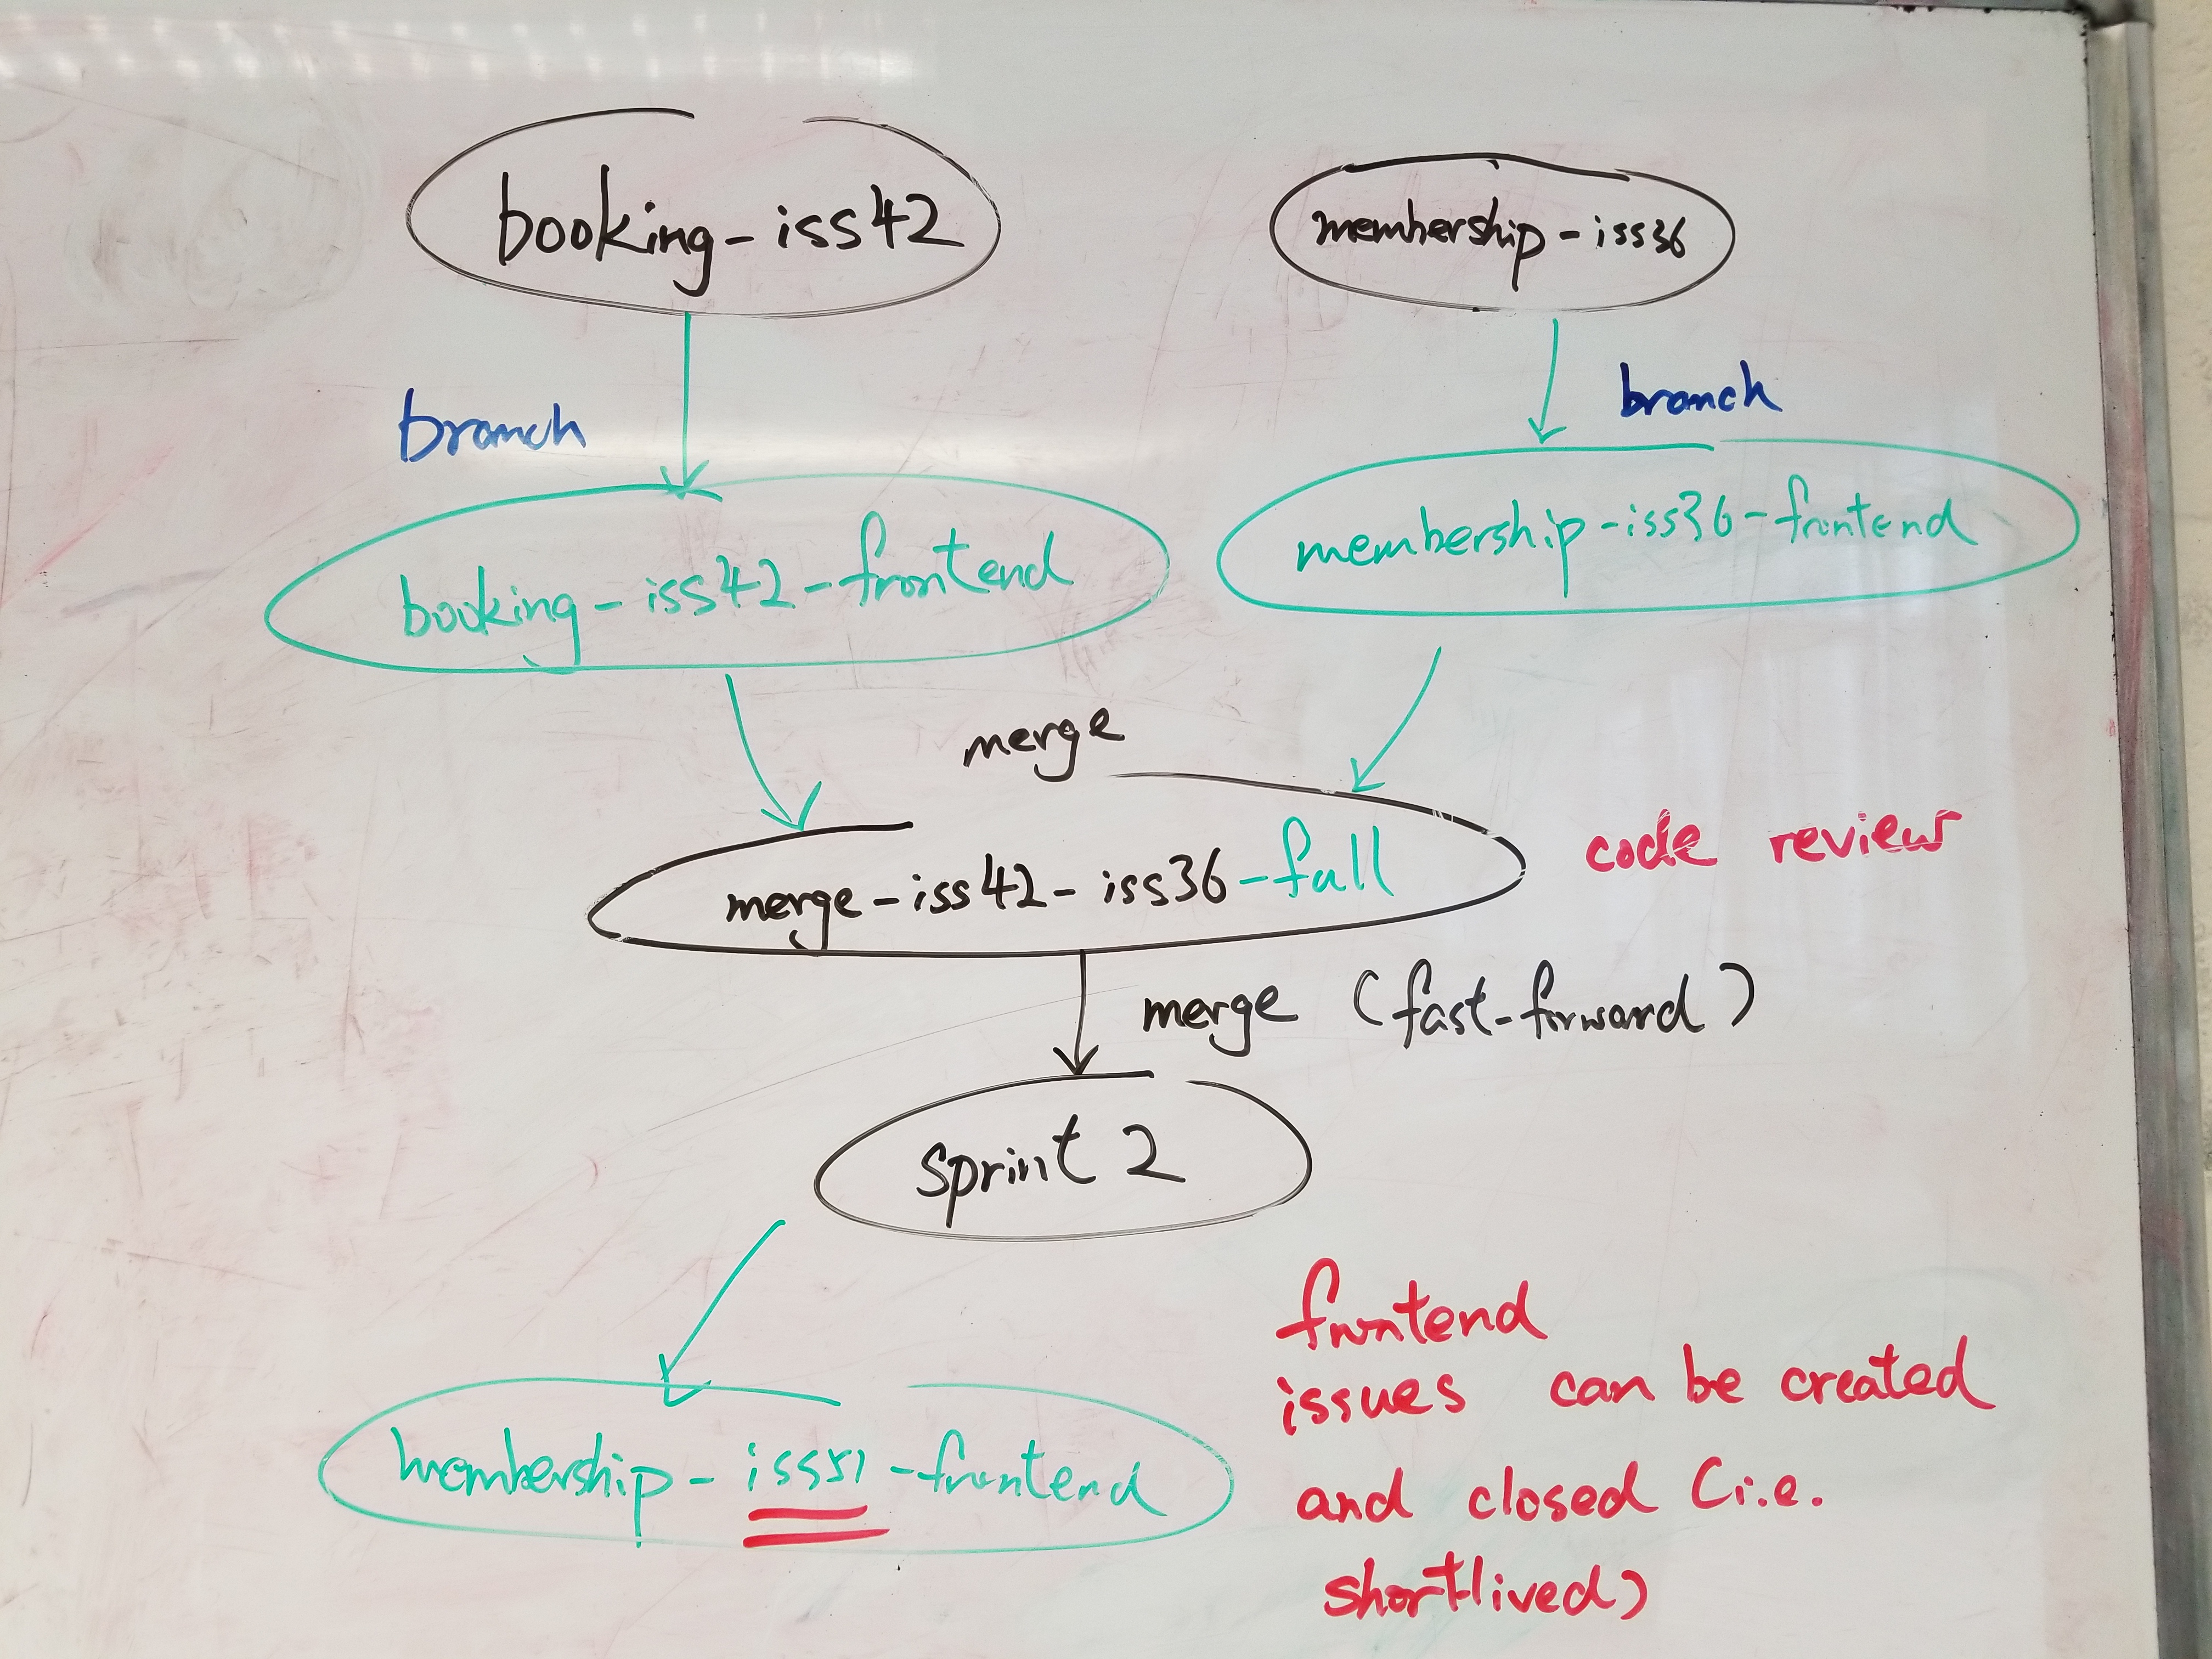 booking-iss42
membership-iss36
branch
branch
booking-iss42-frontend
membership-iss36-frontend
merge
merge-iss42-iss36-full
code review
merge (fast-forward)
sprint 2
membership-iss51-frontend
frontend
issues can be created
and closed (i.e.
shortlived)